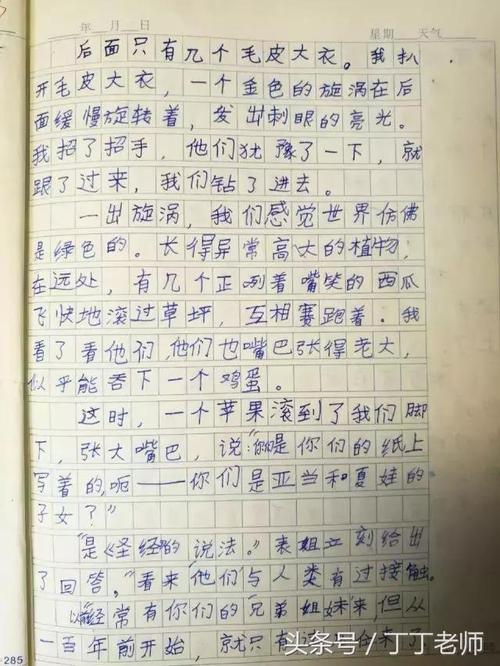 年 月 日 星期 天气
后面只有几个毛皮大衣。我扒
开毛皮大衣，一个金色的旋涡在后
面缓慢旋转着，发出刺眼的亮光。
我招了招手，他们犹豫了一下，就
跟了过来，我们钻了进去。
一出旋涡，我们感觉世界仿佛
是绿色的。长得异常高大的植物；
在远处，有几个正咧着嘴笑的西瓜
飞快地滚过草坪，互相赛跑着。我
看了看他们，他们也嘴巴张得老大，
似乎能吞下一个鸡蛋。
这时，一个苹果滚到了我们脚
下，张大嘴巴，说：“你们是你们的纸上
写着的，呃——你们是亚当和夏娃的
子女？”
“是《圣经》的说法。”表姐立刻给出
了回答。“看来他们与人类有过接触。
经常有你们的兄弟姐妹来，但从
一百年前开始，就只有 来了
285
头条号／丁丁老师